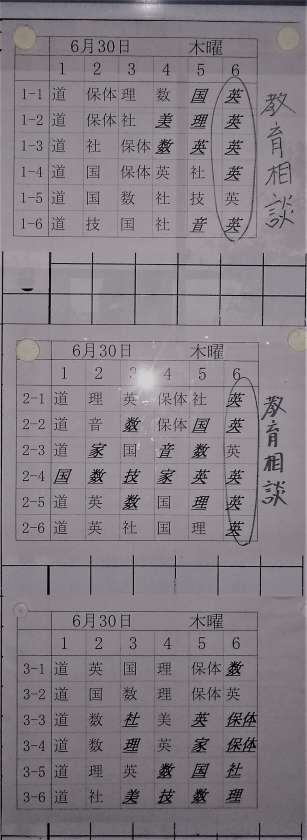 6月30日 木曜
1 2 3 4 5 6
1-1 道 保体 理 数 国 英
1-2 道 保体 社 美 理 英
1-3 道 社 保体 数 英 英
1-4 道 国 保体 英 社 英
1-5 道 国 数 社 技 英
1-6 道 技 国 社 音 英
教育相談
6月30日 木曜
1 2 3 4 5 6
2-1 道 理 英 保体 社 英
2-2 道 音 数 保体 国 英
2-3 道 家 国 音 数 英
2-4 国 数 技 家 英 英
2-5 道 英 数 国 理 英
2-6 道 英 社 国 理 英
教育相談
6月30日 木曜
1 2 3 4 5 6
3-1 道 英 国 理 保体 数
3-2 道 国 数 理 保体 英
3-3 道 数 社 美 英 保体
3-4 道 数 理 英 家 保体
3-5 道 理 英 数 国 社
3-6 道 社 美 技 数 理